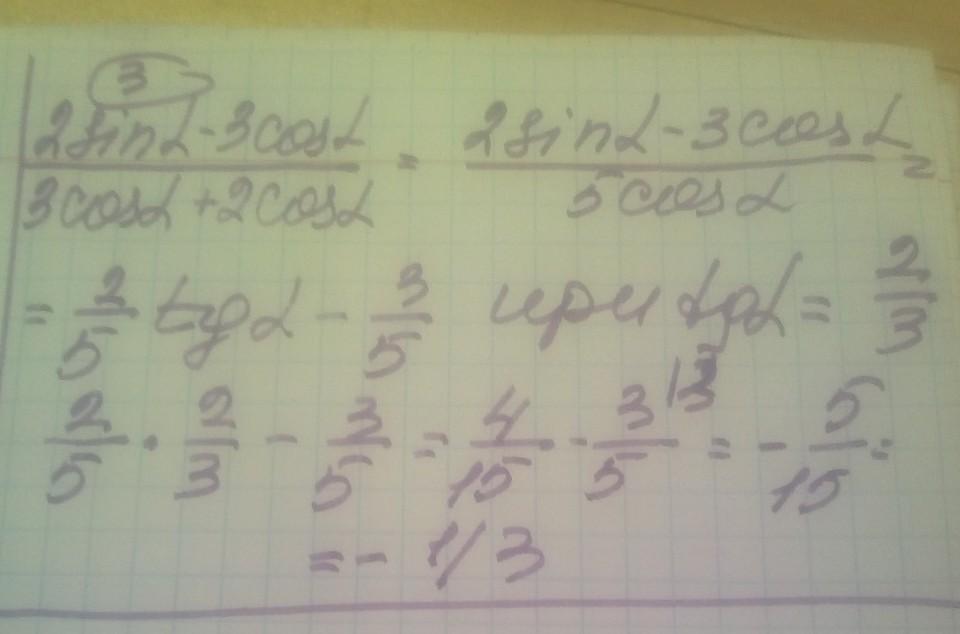 3
(2sinα-3cosα)/(3cosα+2cosα) = (2sinα-3cosα)/(5cosα) =
= 2/5 tgα - 3/5 при tgα = 2/3
2/5 · 2/3 - 3/5 = 4/15 - 3/5 |3 = - 5/15 =
= - 1/3